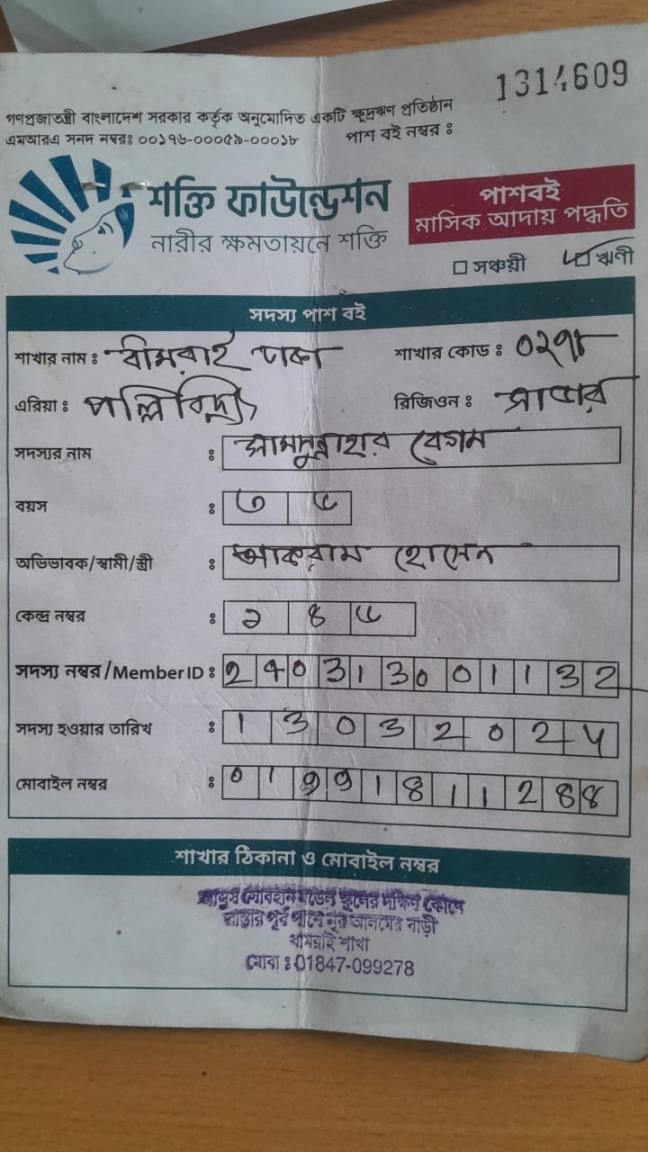 1314609
গণপ্রজাতন্ত্রী বাংলাদেশ সরকার কর্তৃক অনুমোদিত একটি ক্ষুদ্রঋণ প্রতিষ্ঠান
এমআরএ সনদ নম্বরঃ ০০১৭৬-০০০৫৯-০০০১৮ পাশ বই নম্বর ঃ
শক্তি ফাউন্ডেশন
নারীর ক্ষমতায়নে শক্তি
পাশবই
মাসিক আদায় পদ্ধতি
সঞ্চয়ী ঋণী
সদস্য পাশ বই
শাখার নাম ঃ শাখার কোড ঃ ০২৭৮
এরিয়া ঃ পল্লিবিদ্যুৎ রিজিওন ঃ সাভার
সদস্যের নাম ঃ সামসুন্নাহার বেগম
বয়স ঃ ৩ ৫
অভিভাবক/স্বামী/স্ত্রী ঃ আকরাম হোসেন
কেন্দ্র নম্বর ঃ ১ ৪ ৫
সদস্য নম্বর/Member ID ঃ 240313001132
সদস্য হওয়ার তারিখ ঃ 1303202৪
মোবাইল নম্বর ঃ
শাখার ঠিকানা ও মোবাইল নম্বর
মডেল স্কুলের দক্ষিণ কোণে
রাস্তার পূর্ব পাশে নূর আলমের বাড়ী
ধামরাই শাখা
মোবা ঃ 01847-099278